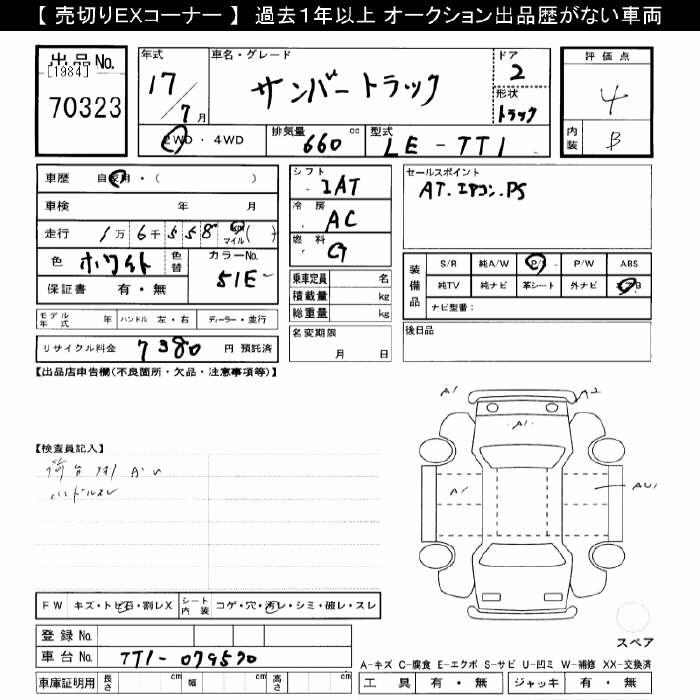 【 売切りEXコーナー 】 過去1年以上 オークション出品歴がない車両
出品No. [1984] 70323
年式 17/7月
車名・グレード サンバートラック
ドア 2
形状 トラック
2WD・4WD
排気量 660 cc
型式 LE-TT1
評価点 4
内装 B
車歴 自家用・( )
車検 年 月
走行 1万6千558 km マイル ( )
色 ホワイト 色替 カラーNo. 51E
保証書 有・無
モデル年式 年 ハンドル 左・右 ディーラー・並行
リサイクル料金 7380 円 預託済
シフト AT
冷房 AC
燃料 G
乗車定員 名
積載量 kg
総重量 kg
名変期限 月 日
セールスポイント
AT.エアコン.PS
装備品 S/R 純A/W P/S P/W ABS
純TV 純ナビ 革シート 外ナビ
ナビ型番:
後日品
【出品店申告欄(不良箇所・欠品・注意事項等)】
【検査員記入】
荷台
ハンドルスレ
A1
A2
A1
A1
AU1
FW キズ・トビ石・割レX シート内装 コゲ・穴・汚レ・シミ・破レ・スレ
登録No.
車台No. TT1-079570
車庫証明用 長さ cm 幅 cm 高さ cm
スペア
A-キズ C-腐食 E-エクボ S-サビ U-凹ミ W-補修 XX-交換済
工具 有・無 ジャッキ 有・無